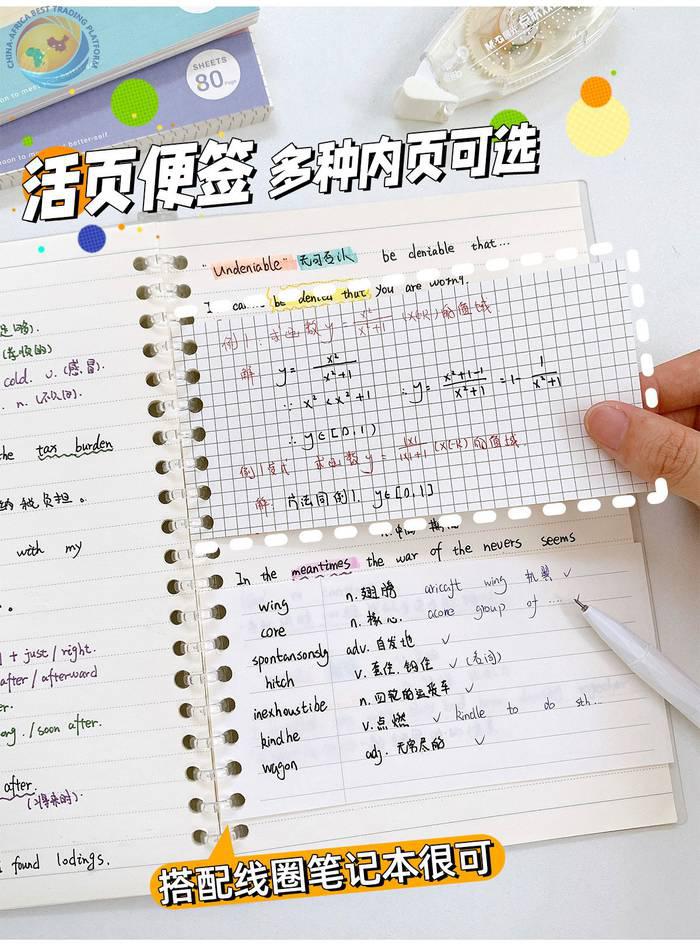 CHINA-AFRICA BEST TRADING PLATFORM
SHEETS
80
Page
M&G
活页便签 多种内页可选
"Undeniable" 无可否认 be deniable that...
be denied that you are worng.
例1: 求函数 y = x²/x²+1 (x∈R) 的值域
解 y = x²/x²+1
∵ x² < x²+1 ∴ y = x²+1-1/x²+1 = 1- 1/x²+1
∴ y∈[0,1)
例1变式 求函数 y = |x|/|x|+1 (x∈R) 的值域
解: 方法同例1. y∈[0,1]
cold. v. (感冒).
the tax burden
纳税负担。
with my
+ just / right.
after / afterward
/ soon after.
after.
found lodings.
In the meantimes the war of the nevers seems
wing n. 翅膀 aricaft wing 机翼 ✓
core n. 核心. acore group of ... ✓
spontansonsly adv. 自发地 ✓
hitch v. 套住. 钩住 ✓
inexhoustibe n. 四轮的运货车 ✓
kindhe v. 点燃 ✓ kindle to do sth..
wagon adj. 无穷尽的 ✓
搭配线圈笔记本很可